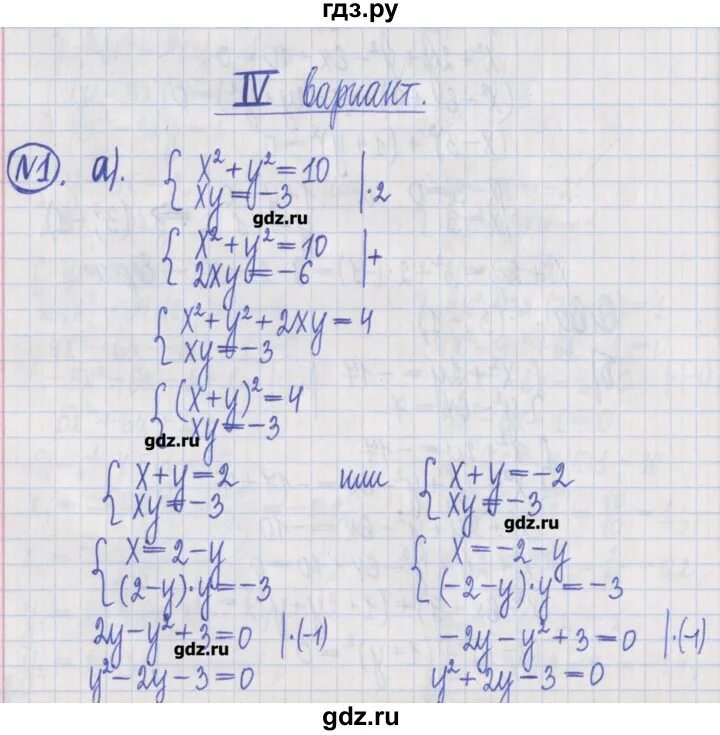 гдз.ру
IV вариант.
№1. а). { x² + y² = 10
xy = -3 | ·2
gdz.ru
{ x² + y² = 10
2xy = -6 | +
{ x² + y² + 2xy = 4
xy = -3
{ (x+y)² = 4
xy = -3
gdz.ru
{ x + y = 2 или { x + y = -2
xy = -3 xy = -3
gdz.ru
{ x = 2 - y { x = -2 - y
(2-y)·y = -3 (-2-y)·y = -3
2y - y² + 3 = 0 | ·(-1) -2y - y² + 3 = 0 | ·(-1)
gdz.ru
y² - 2y - 3 = 0 y² + 2y - 3 = 0
gdz.ru